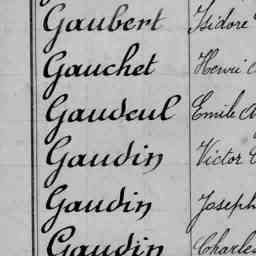 Gaubert Isidore
Gauchet Henri
Gaudeul Emile A
Gaudin Victor
Gaudin Joseph
Gaudin Charles